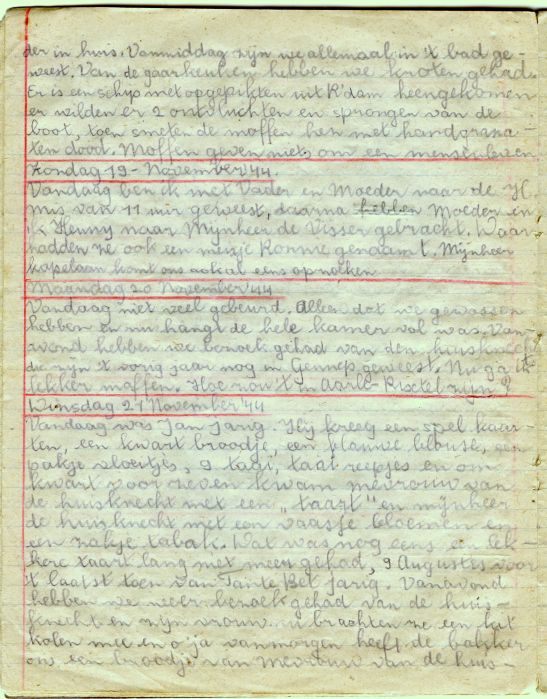 der in huis. Vanmiddag zijn we allemaal in 't bad ge-
weest. Van de gaarkeuken hebben we kroten gehad.
Er is een schip met opgepikten uit R'dam heengekomen
er wilden er 2 ontvluchten en sprongen van de
boot, toen smeten de moffen hen met handgrana-
ten dood. Moffen geven niets om een menschenleven
Zondag 19 - November '44.
Vandaag ben ik met Vader en Moeder naar de H.
mis van 11 uur geweest, daarna hebben Moeder en
ik Henny naar Mijnheer de Visser gebracht. Daar
hadden ze ook een meisje Ronnie genaamt. Mijnheer
kapelaan komt ons ook al eens opzoeken
Maandag 20 November '44
Vandaag niet veel gebeurd. Alleen dat we gewassen
hebben en nu hangt de hele kamer vol was. Van-
avond hebben we bezoek gehad van den huisknecht
die zijn 't vorig jaar nog in Gennep geweest. Nu ga ik
lekker maffen. Hoe zou 't in Aarle-Rixtel zijn?
Dinsdag 21 November '44
Vandaag was Jan jarig. Hij kreeg een spel kaar-
ten, een kwart broodje, een blauwe blouse, een
pakje vloeitjes, 9 taai, taai reepjes en om
kwart voor zeven kwam mevrouw van
de huisknecht met een „taart" en mijnheer
de huisknecht met een vaasje bloemen en
een zakje tabak. Wat was nog eens een lek-
kere taart lang niet meer gehad, 9 Augustus voor
't laatst toen was Tante Bet jarig. Vanavond
hebben we weer bezoek gehad van de huis-
knecht en zijn vrouw, nu brachten ze een kit
kolen mee en o ja vanmorgen heeft de bakker
ons een broodje van mevrouw van de huis-